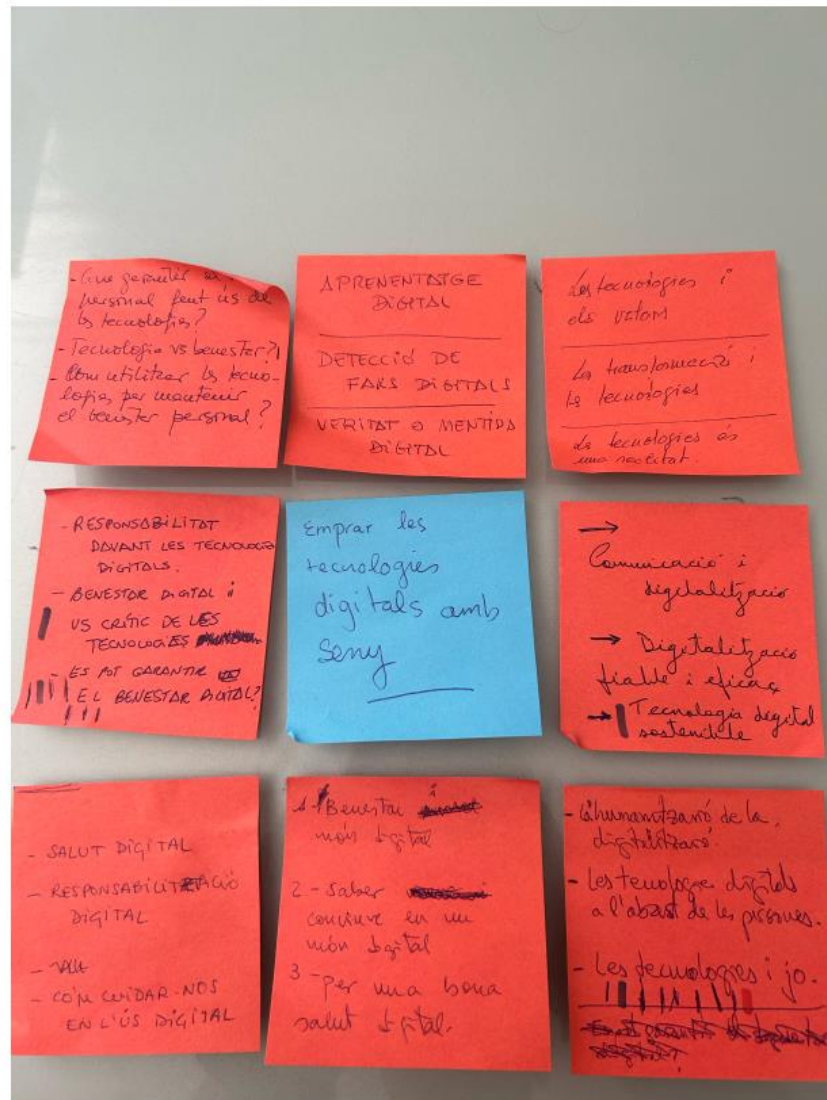 personal fent ús de
les tecnologies?
- Tecnologia vs benester?
- Com utilitzar les tecno-
logies per mantenir
el benester personal?
APRENENTATGE
DIGITAL
DETECCIÓ DE
FAKS DIGITALS
VERITAT O MENTIDA
DIGITAL
Les tecnologies i
els
La transformació i
les tecnologies
Les tecnologies és
una realitat.
- RESPONSABILITAT
DAVANT LES TECNOLOGIES
DIGITALS.
- BENESTAR DIGITAL i
US CRÍTIC DE LES
TECNOLOGIES
- ES POT GARANTIR
EL BENESTAR DIGITAL?
Emprar les
tecnologies
digitals amb
seny
→
Comunicació i
digitalització
→ Digitalització
fiable i eficaç
→ Tecnologia digital
sostenible
- SALUT DIGITAL
- RESPONSABILITZACIÓ
DIGITAL
- COM CUIDAR-NOS
EN L'ÚS DIGITAL
1 - Benestar i
món digital
2 - Saber
conviure en un
món digital
3 - per una bona
salut digital.
- L'humanització de la
digitalització.
- Les tecnologies digitals
a l'abast de les persones.
- Les tecnologies i jo.